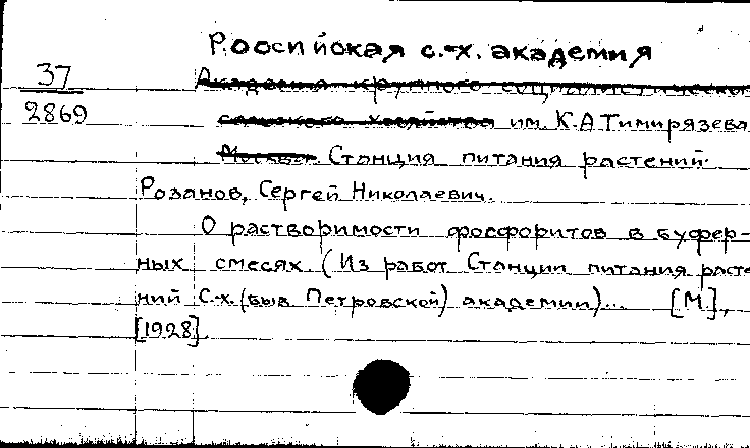 Российская с.-х. академия
37
2869
Академия крупного социалистическо
сельского хозяйства им. К.А Тимирязева
Москва. Станция питания растений.
Розанов, Сергей Николаевич.
О растворимости фосфоритов в буфер-
ных смесях. (Из работ Станции питания расте
ний С.-х. (быв Петровской) академии)... [М].,
[1928].